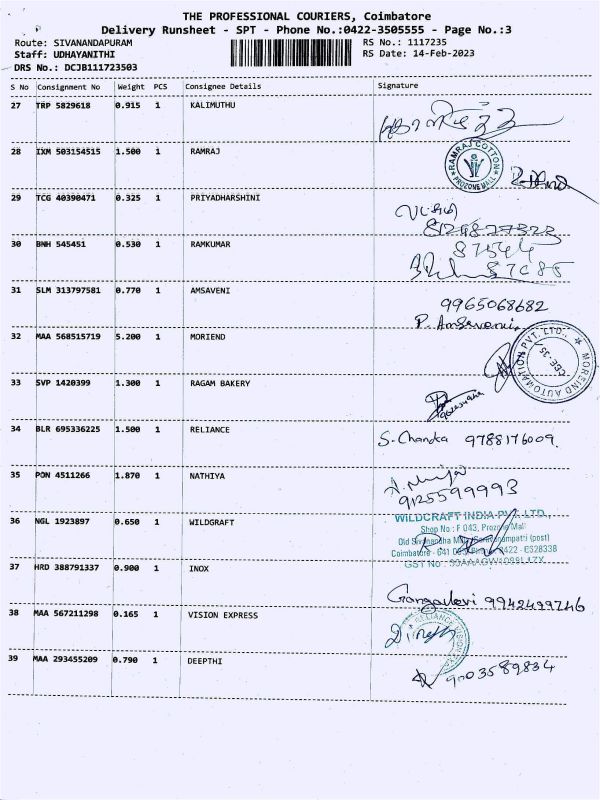 THE PROFESSIONAL COURIERS, Coimbatore
Delivery Runsheet - SPT - Phone No.:0422-3505555 - Page No.:3
Route: SIVANANDAPURAM
RS No.: 1117235
Staff: UDHAYANITHI
RS Date: 14-Feb-2023
DRS No.: DCJB111723503
S No Consignment No Weight PCS Consignee Details Signature
27 TRP 5829618 0.915 1 KALIMUTHU
28 IXM 503154515 1.500 1 RAMRAJ
RAMRAJ COTTON
PROZONE MALL
29 TCG 40390471 0.325 1 PRIYADHARSHINI
30 BNH 545451 0.530 1 RAMKUMAR
31 SLM 313797581 0.770 1 AMSAVENI
9965068682
P. Amsaveni
32 MAA 568515719 5.200 1 MORIEND
MOREIND AUTOMATION PVT. LTD.,
CBE-35
33 SVP 1420399 1.300 1 RAGAM BAKERY
34 BLR 695336225 1.500 1 RELIANCE
S. Chandra 9788176009.
35 PON 4511266 1.870 1 NATHIYA
9125599993
36 NGL 1923897 0.650 1 WILDGRAFT
WILDCRAFT INDIA PVT. LTD.,
Shop No : F 043, Prozone Mall
37 HRD 388791337 0.900 1 INOX
Gangadevi 9942499746
38 MAA 567211298 0.165 1 VISION EXPRESS
Dinesh
39 MAA 293455209 0.790 1 DEEPTHI
9003589834